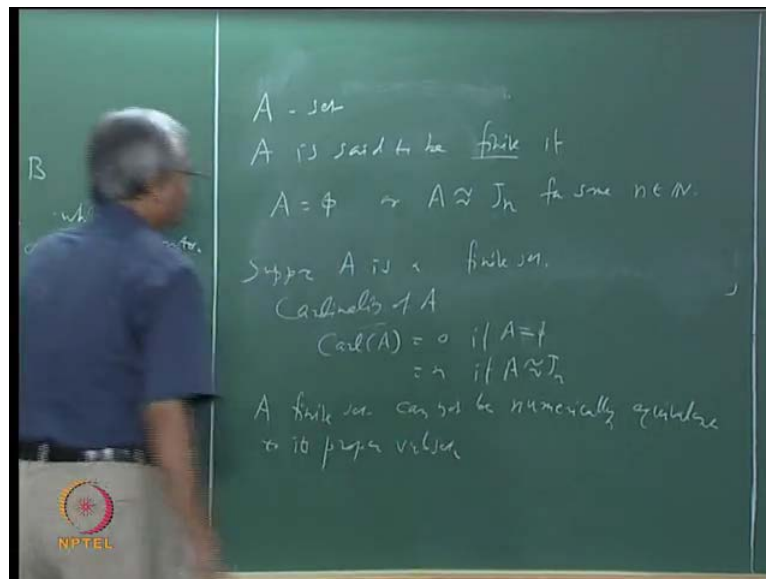 B
A - set
A is said to be finite if
A = ϕ or A ≈ Jn for some n ∈ N.
Suppose A is a finite set.
Cardinality of A
Card(A) = 0 if A = ϕ
= n if A ≈ Jn
A finite set cannot be numerically equivalent
to its proper subset
NPTEL